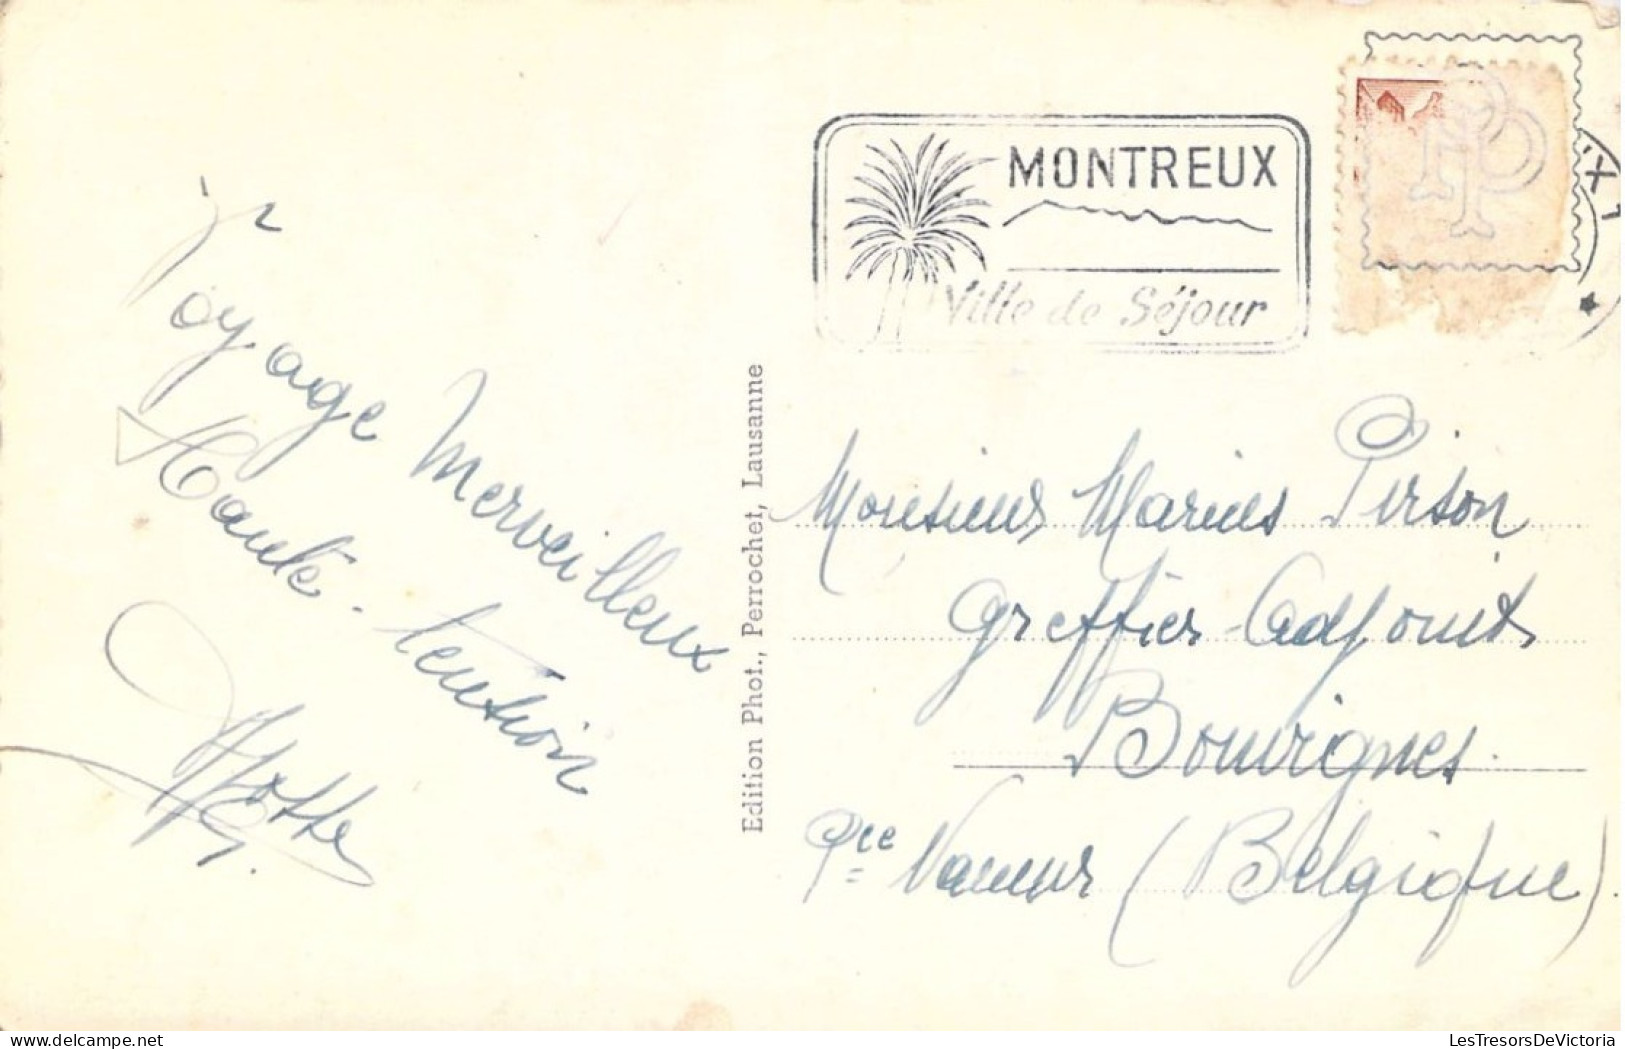 Voyage Merveilleux
Haute-tension
MONTREUX
Ville de Séjour
Edition Phot., Perrochet, Lausanne
Monsieur Marius Pirson
Greffier-Adjoint
Bouvignes
Pce Namur (Belgique).
LesTresorsDeVictoria
delcampe.net